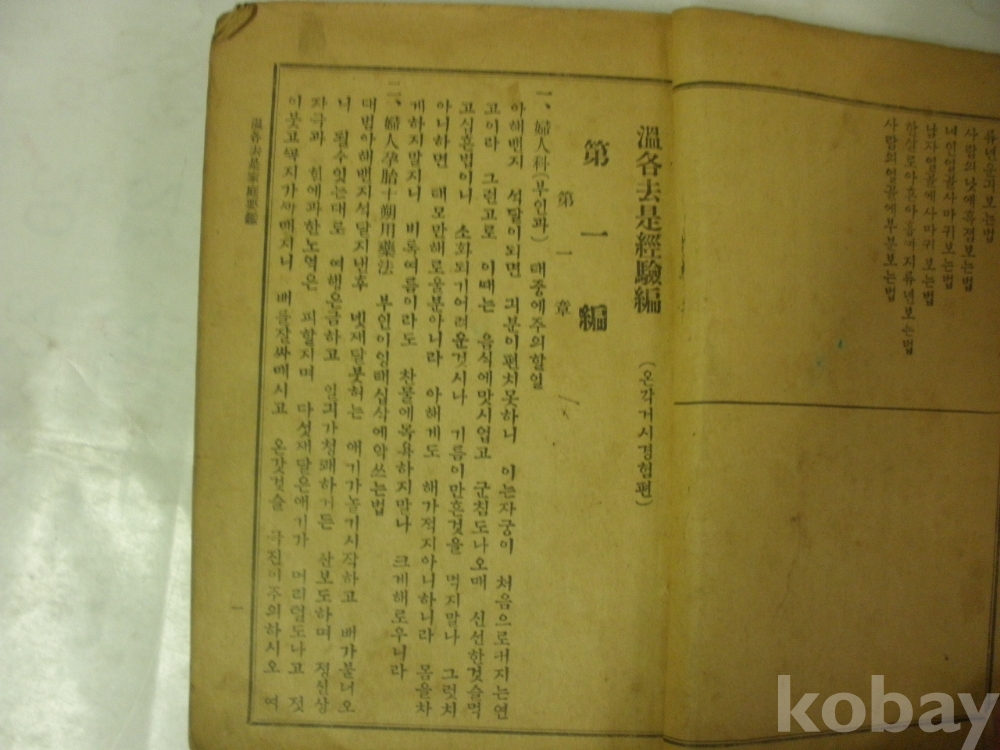 류년운긔보는법
사람의낫에흑졈보는법
녀인얼골사마귀보는법
남자얼골에사마귀보는법
한살로아흔아홉까지류년보는법
사람의얼골에부분보는법
溫各去是經驗編 (온각거시경험편)
第一編
第一章
一、婦人科(부인과) 태중에주의할일
아해밴지 석달이되면 긔분이편치못하니 이는자궁이 처음으로커지는연
고이라 그런고로 이때는 음식에맛시업고 군침도나오매 신선한것슬먹
고심혼법이니 소화되기어려운것시나 기름이만흔것을 먹지말나 그럿치
아니하면 태모만해로울분아니라 아해게도 해가적지아니하니라 몸을차
게하지말지니 비록여름이라도 찬물에목욕하지말나 크게해로우니라
二、婦人孕胎十朔用藥法 부인이잉태십삭에약쓰는법
대범아해밴지석달지낸후 넷재달붓허는 애기가놀기시작하고 배가불너오
니 될수잇는대로 여행은금하고 일긔가청쾌하거든 산보도하며 정신상
자극과 힘에과한노역은 피할지며 다섯재달은애기가 머리털도나고 젓
이붓고꼭지가까매지니 배를잘싸매시고 온갓것슬 극진이주의하시오 여
溫各去是家庭寶鑑
一
kobay